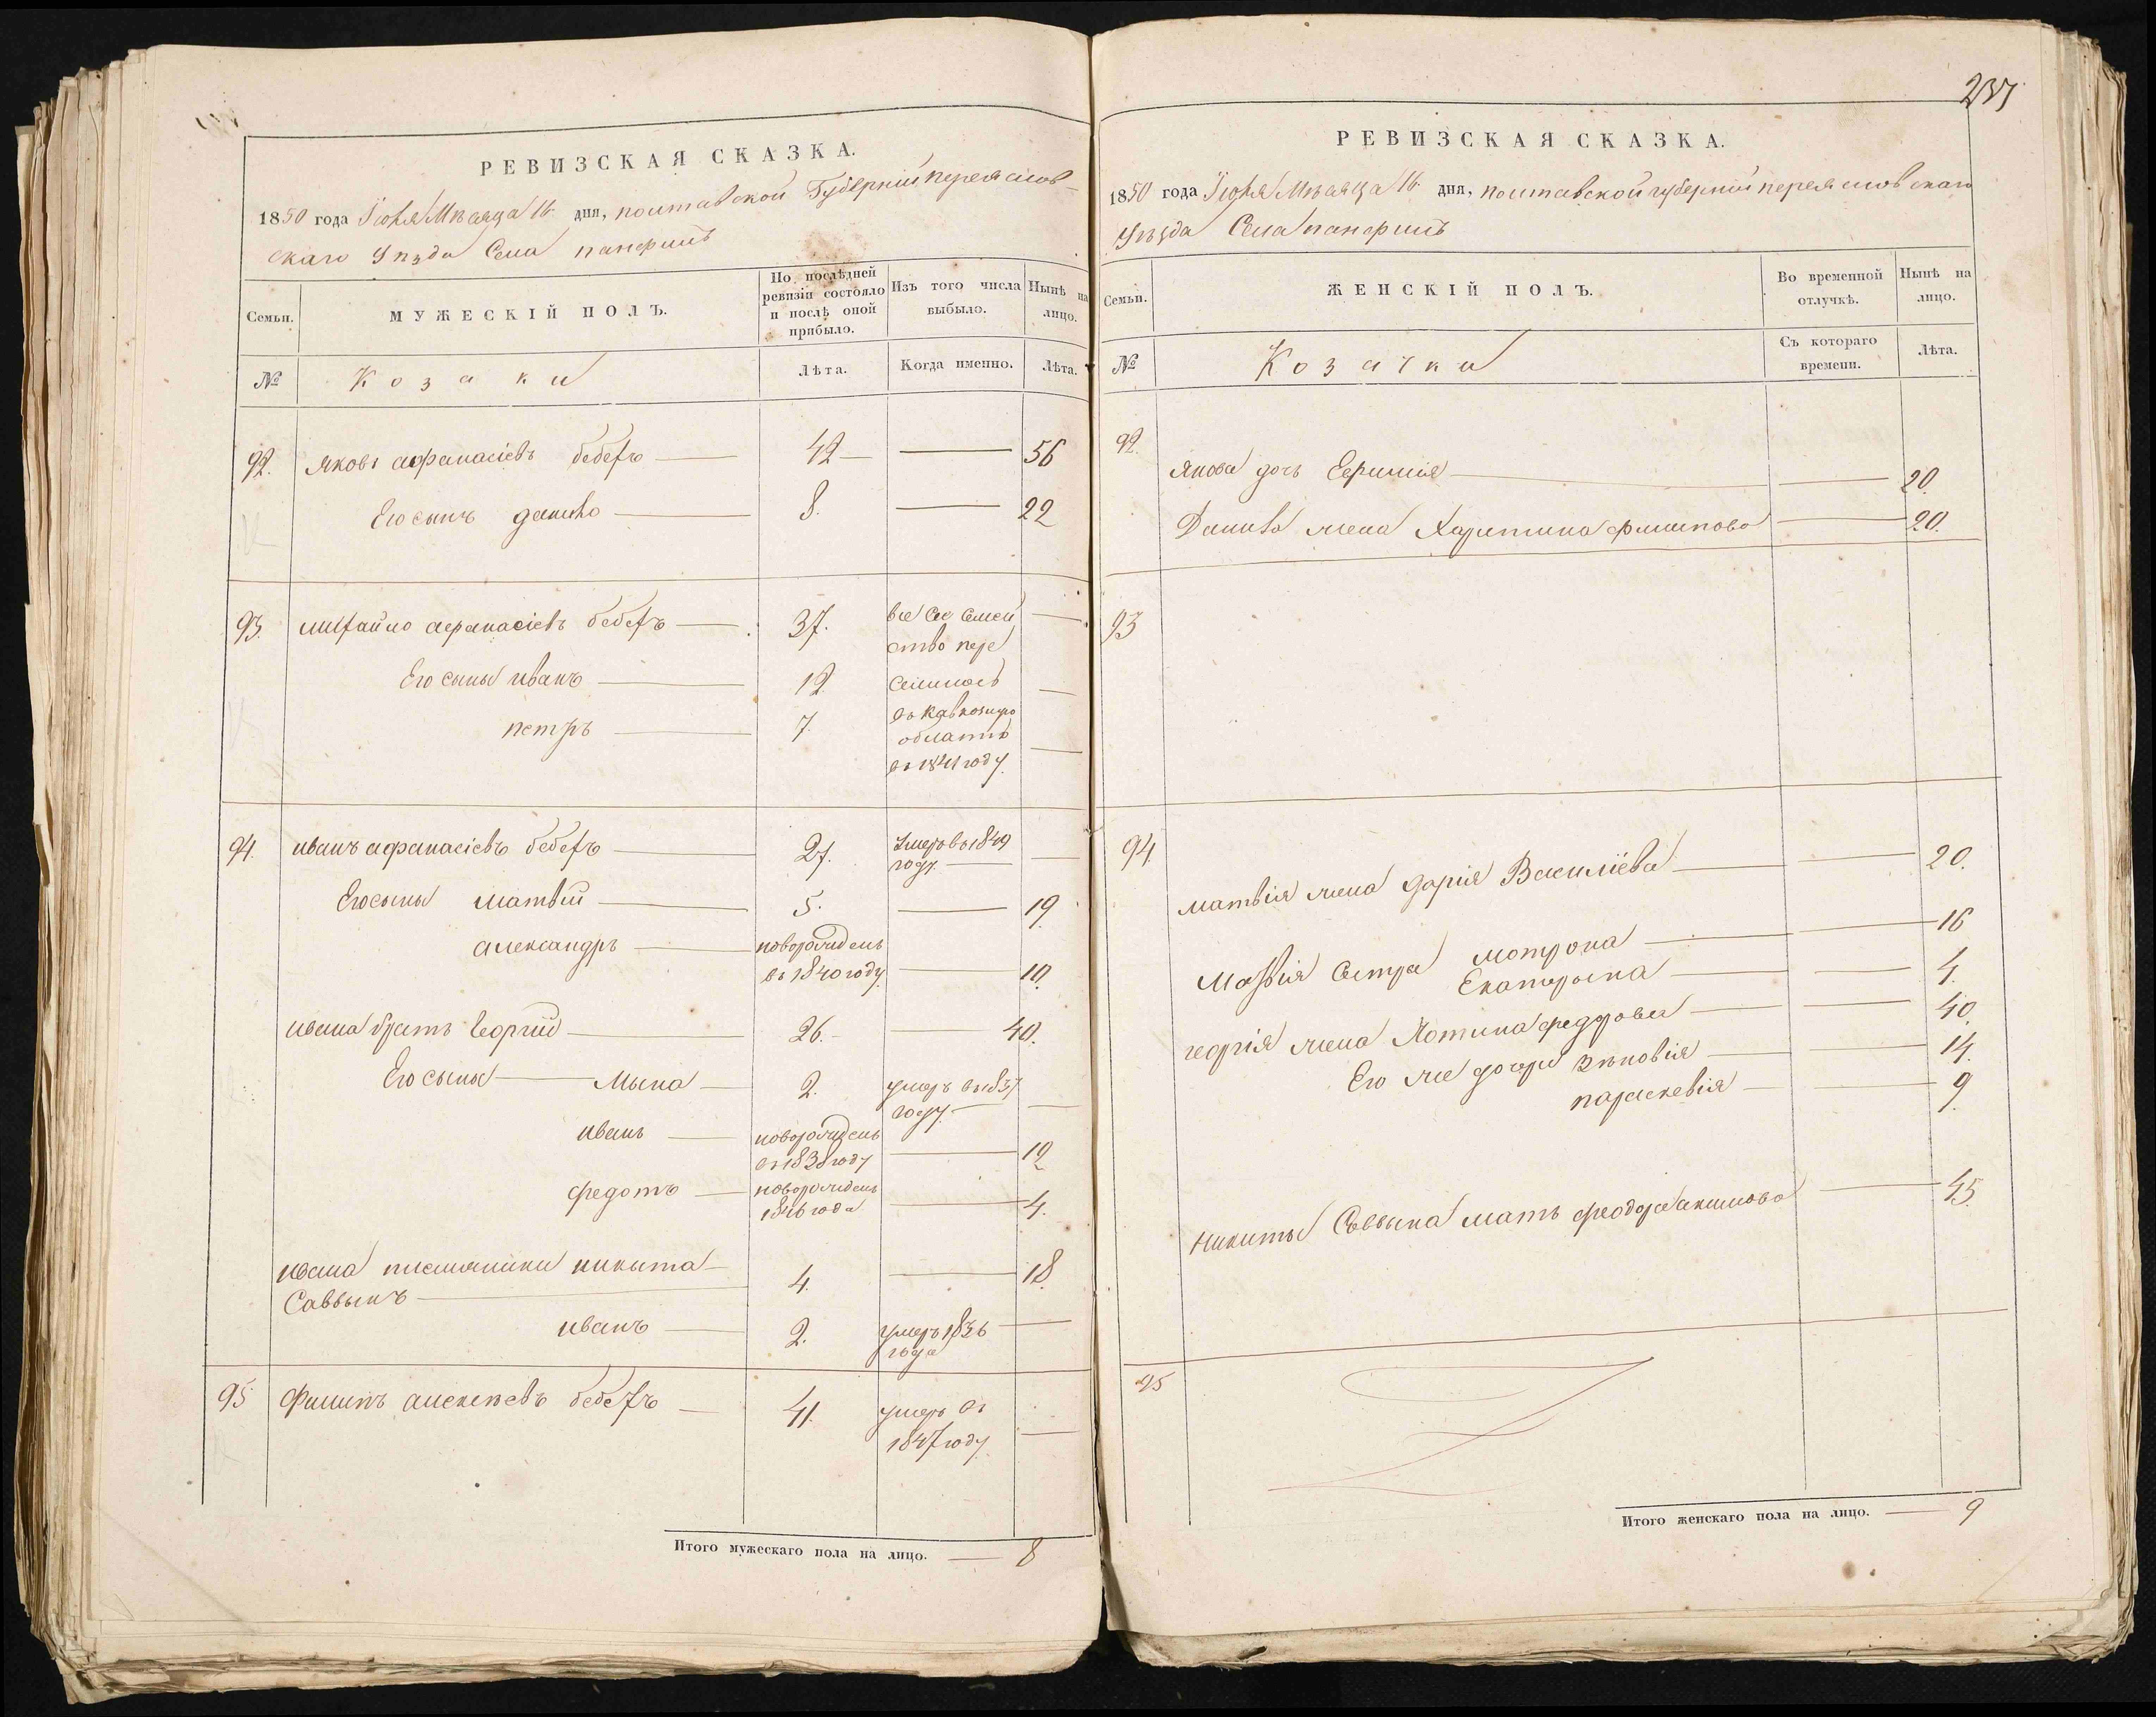 РЕВИЗСКАЯ СКАЗКА.
1850 года Іюня Мѣсяца 16 дня, полтавской Губерніи переяслов-
скаго Уѣзда Села панфилъ
Семьи.
МУЖЕСКІЙ ПОЛЪ.
По послѣдней ревизіи состояло и послѣ оной прибыло.
Изъ того числа выбыло.
Нынѣ на лицо.
№
Козаки
Лѣта.
Когда именно.
Лѣта.
92. яковъ афанасіевъ бебехъ 42 56
Его сынъ данило 8. 22
93. михайло афанасіевъ бебехъ 37. все сее семей
ство пере
Его сыны иванъ 12 селилось
въ кавказскую
петръ 7. область
въ 1841 году
94. иванъ афанасіевъ бебехъ 27. Умеръ въ 1849
году
Его сыны матвій 5. 19
александръ новорожденъ
въ 1840 году 10.
ивана братъ Георгій 26. 40.
Его сыны Мина 2. умеръ въ 1837
году
иванъ новорожденъ
въ 1838 году 12
федотъ новорожденъ
1846 года 4.
ивана племянники никита
Саввынъ 4. 18.
иванъ 2. умеръ 1836
года
95 Филипъ алексѣевъ бебехъ 41. умеръ въ
1847 году
Итого мужескаго пола на лицо. 8
237
РЕВИЗСКАЯ СКАЗКА.
1850 года Іюня Мѣсяца 16 дня, полтавской губерніи переясловскаго
Уѣзда Села панфилъ
Семьи.
ЖЕНСКІЙ ПОЛЪ.
Во временной отлучкѣ.
Нынѣ на лицо.
№
Козачки
Съ котораго времени.
Лѣта.
92.
якова дочь Ефимія 20.
Данила жена Харитина филипова 20.
93
94.
матвія жена дарія Василіева 20.
Матвія сестра мотрона 16
Екатерина 4.
георгія жена Хотина федорова 40.
Его же дочери зѣновія 14.
параскевія 9
никиты Саввына мать феодора акимова 45.
95
Итого женскаго пола на лицо. 9